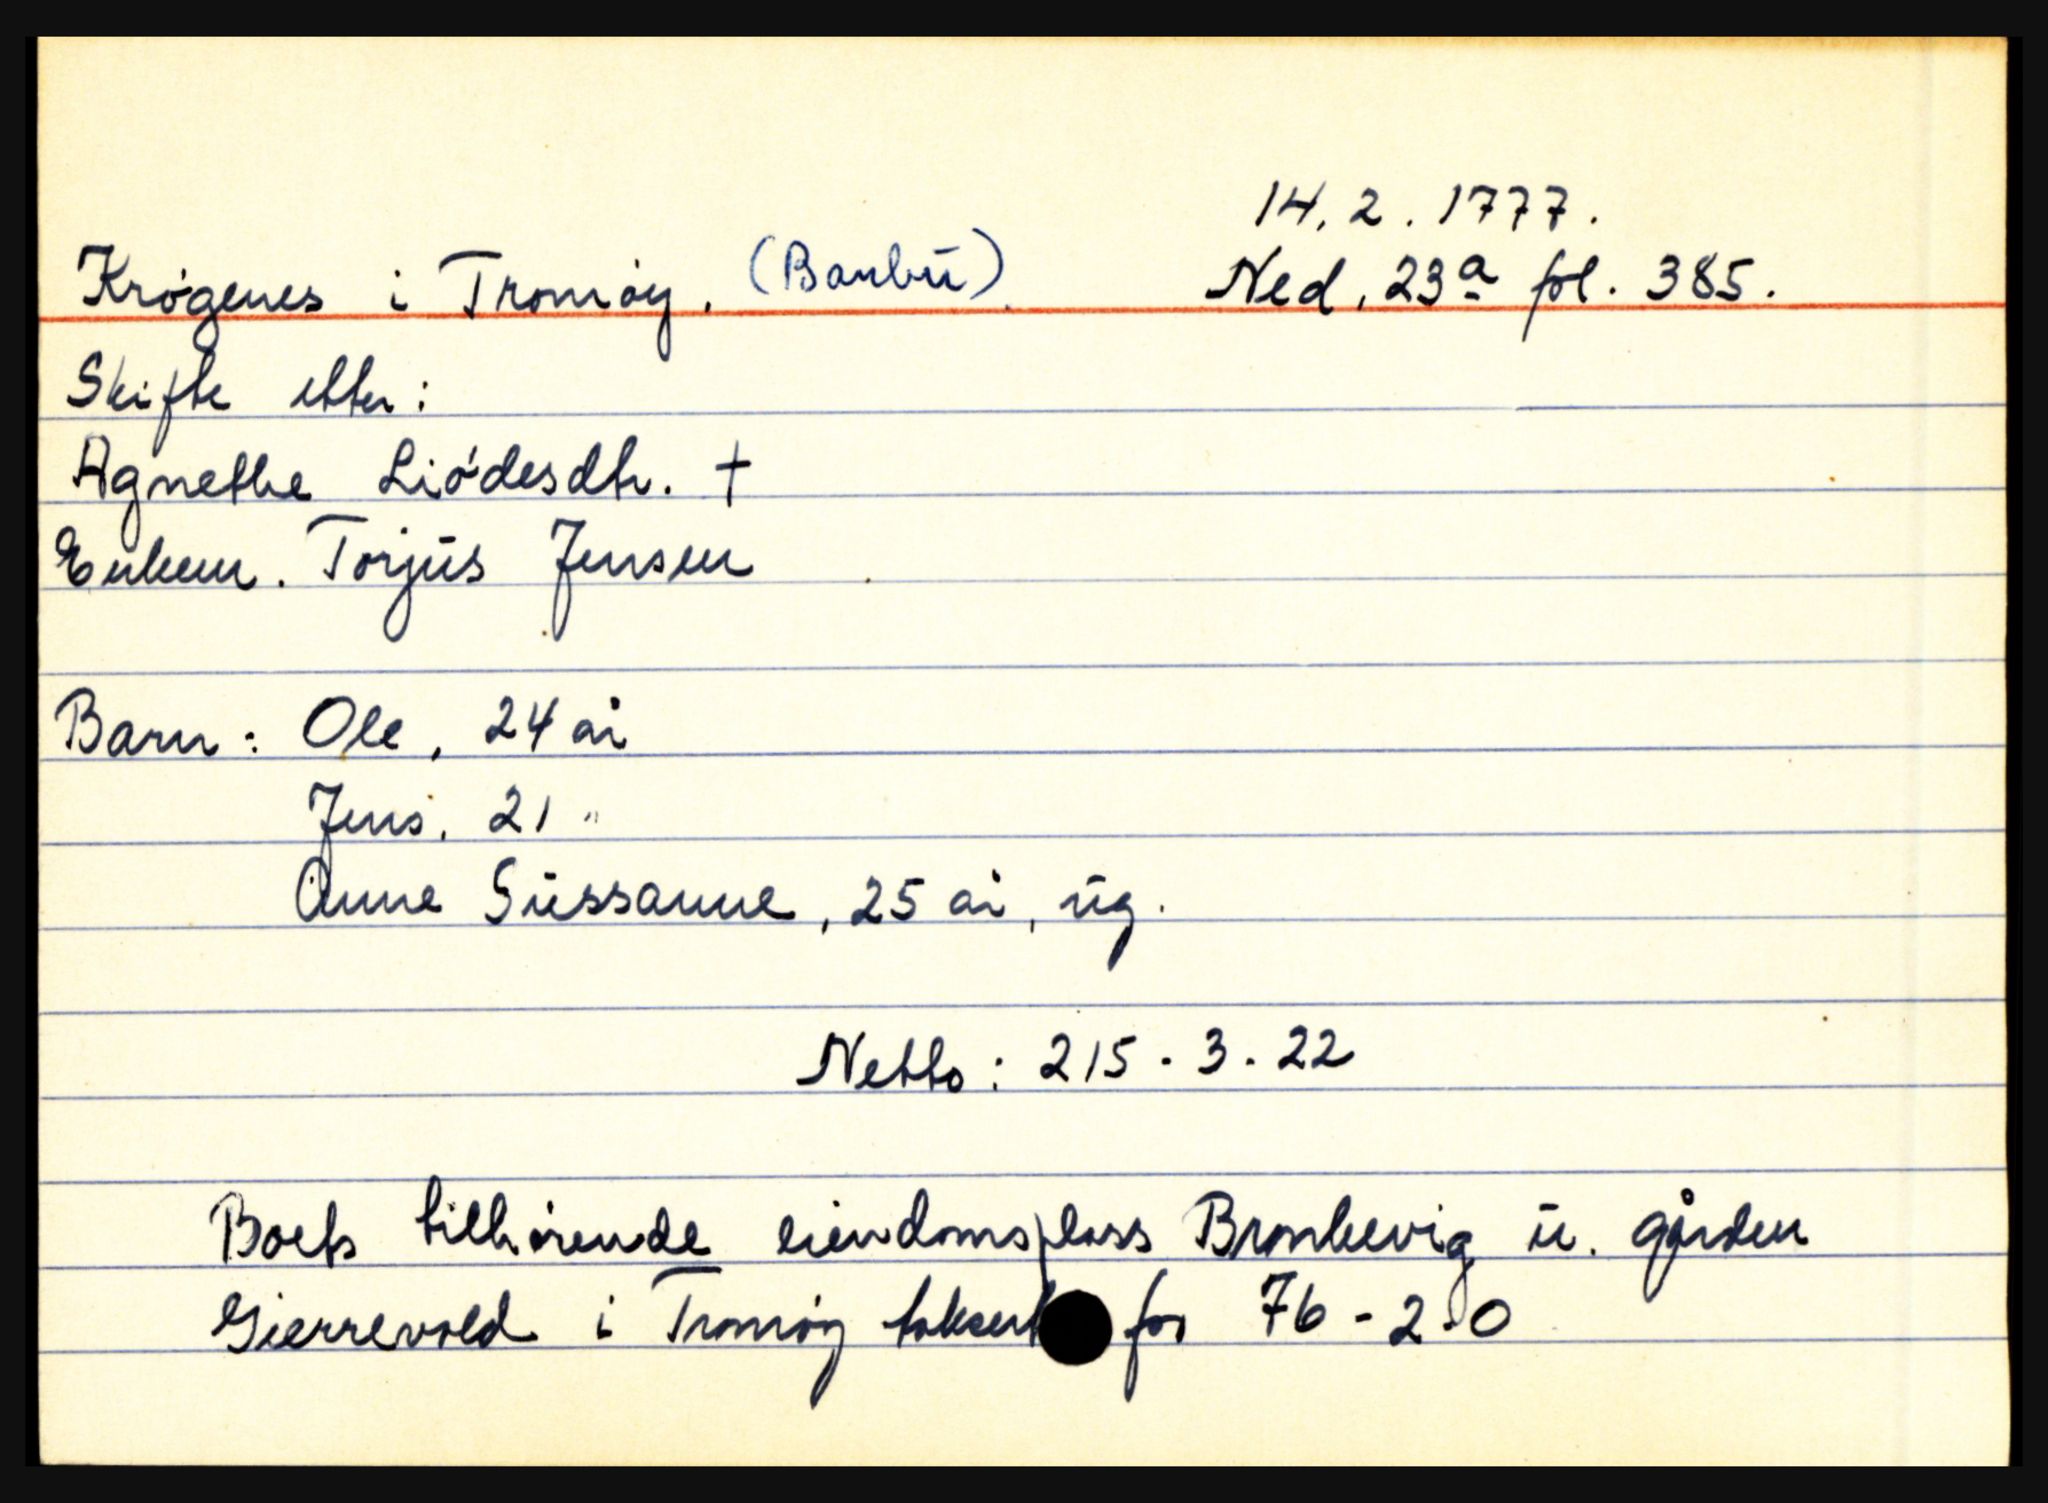 14.2.1777.
Krøgenes i Tromøy. (Barbu) Ned. 23a fol. 385.
Skifte etter:
Agnethe Liødesdtr. †
Enkem. Torjus Jensen
Barn: Ole, 24 år
Jens, 21 "
Anne Sussanne, 25 år, ug.
Netto: 215-3-22
Boets tilhørende eiendomsplass Bronkevig u. gården
Gierrevold i Tromøy taksert for 76-2-0